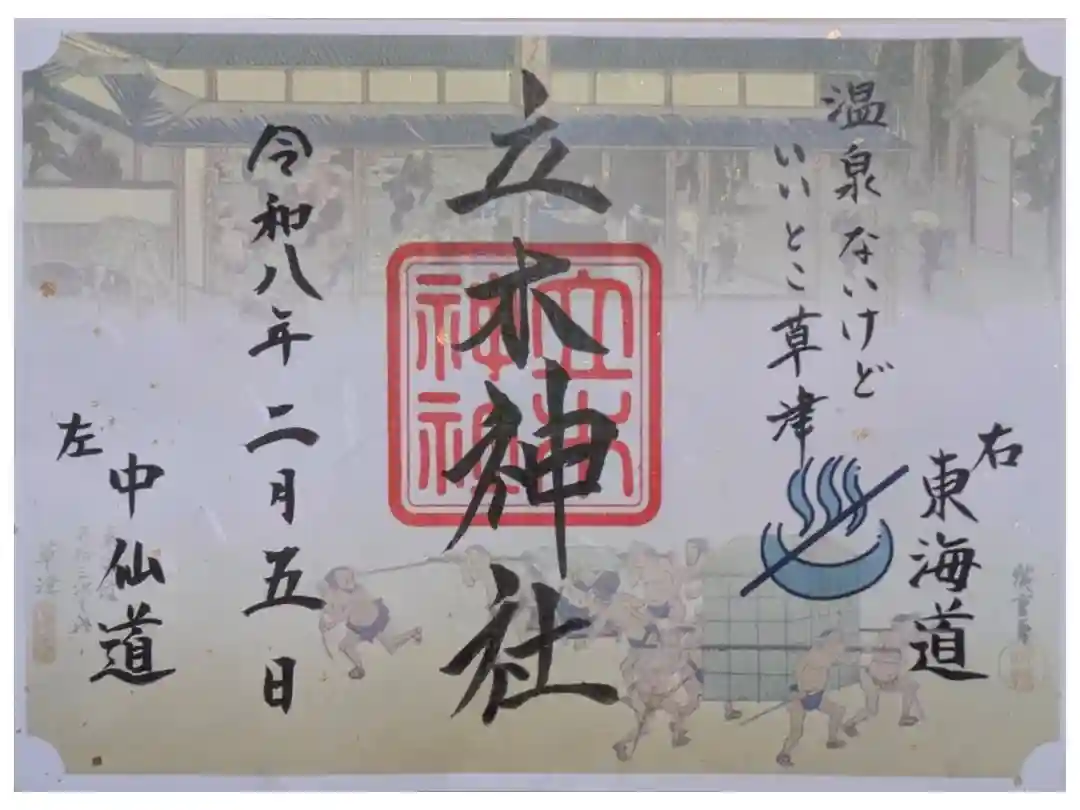 右
東海道
温泉ないけど
いいとこ草津
立木神社
立木
神社
令和八年二月五日
左
中仙道
草津